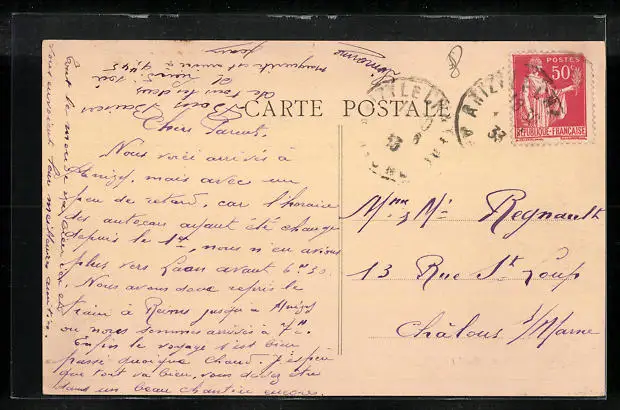 CARTE POSTALE
POSTES
50c
RÉPUBLIQUE FRANÇAISE
33
Chers Parents
Nous voici arrivés à
Anizy, mais avec un
peu de retard, car l'horaire
des autocars ayant été changé
depuis le 1er, nous n'en avions
plus vers Laon avant 6h30.
Nous avons donc repris le
train à Reims jusqu'à Anizy
ou nous sommes arrivés à 7h.
Enfin le voyage s'est bien
passé quoique chaud. J'espère
que tout va bien, vous devez être
dans un beau chantier encore.
Tout le monde va bien ici et
vous envoient leurs meilleures amitiés.
Bons Baisers
de tous
Marguerite est arrivée à
Simonne
Mme & Mr Regnault
13 Rue St Loup
Châlons s/Marne